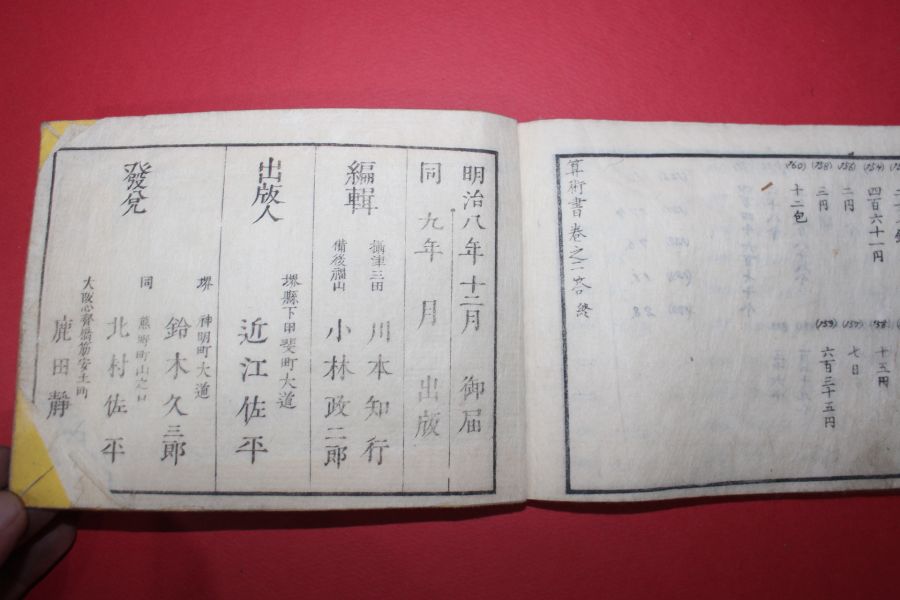 (154)
四百六十一円
(156)
二円
(158)
三円
(160)
十二包
十五円
(157)
七日
(159)
六百三十五円
算術書巻之二答 終
明治八年十二月 御届
同 九年 月 出版
編輯
攝津三田 川本知行
備後福山 小林政二郎
出版人
堺縣下甲斐町大道
近江佐平
發兌
堺 神明町大道
鈴木久三郎
同 熊野町山之口
北村佐平
大阪心齋橋筋安土町
鹿田靜